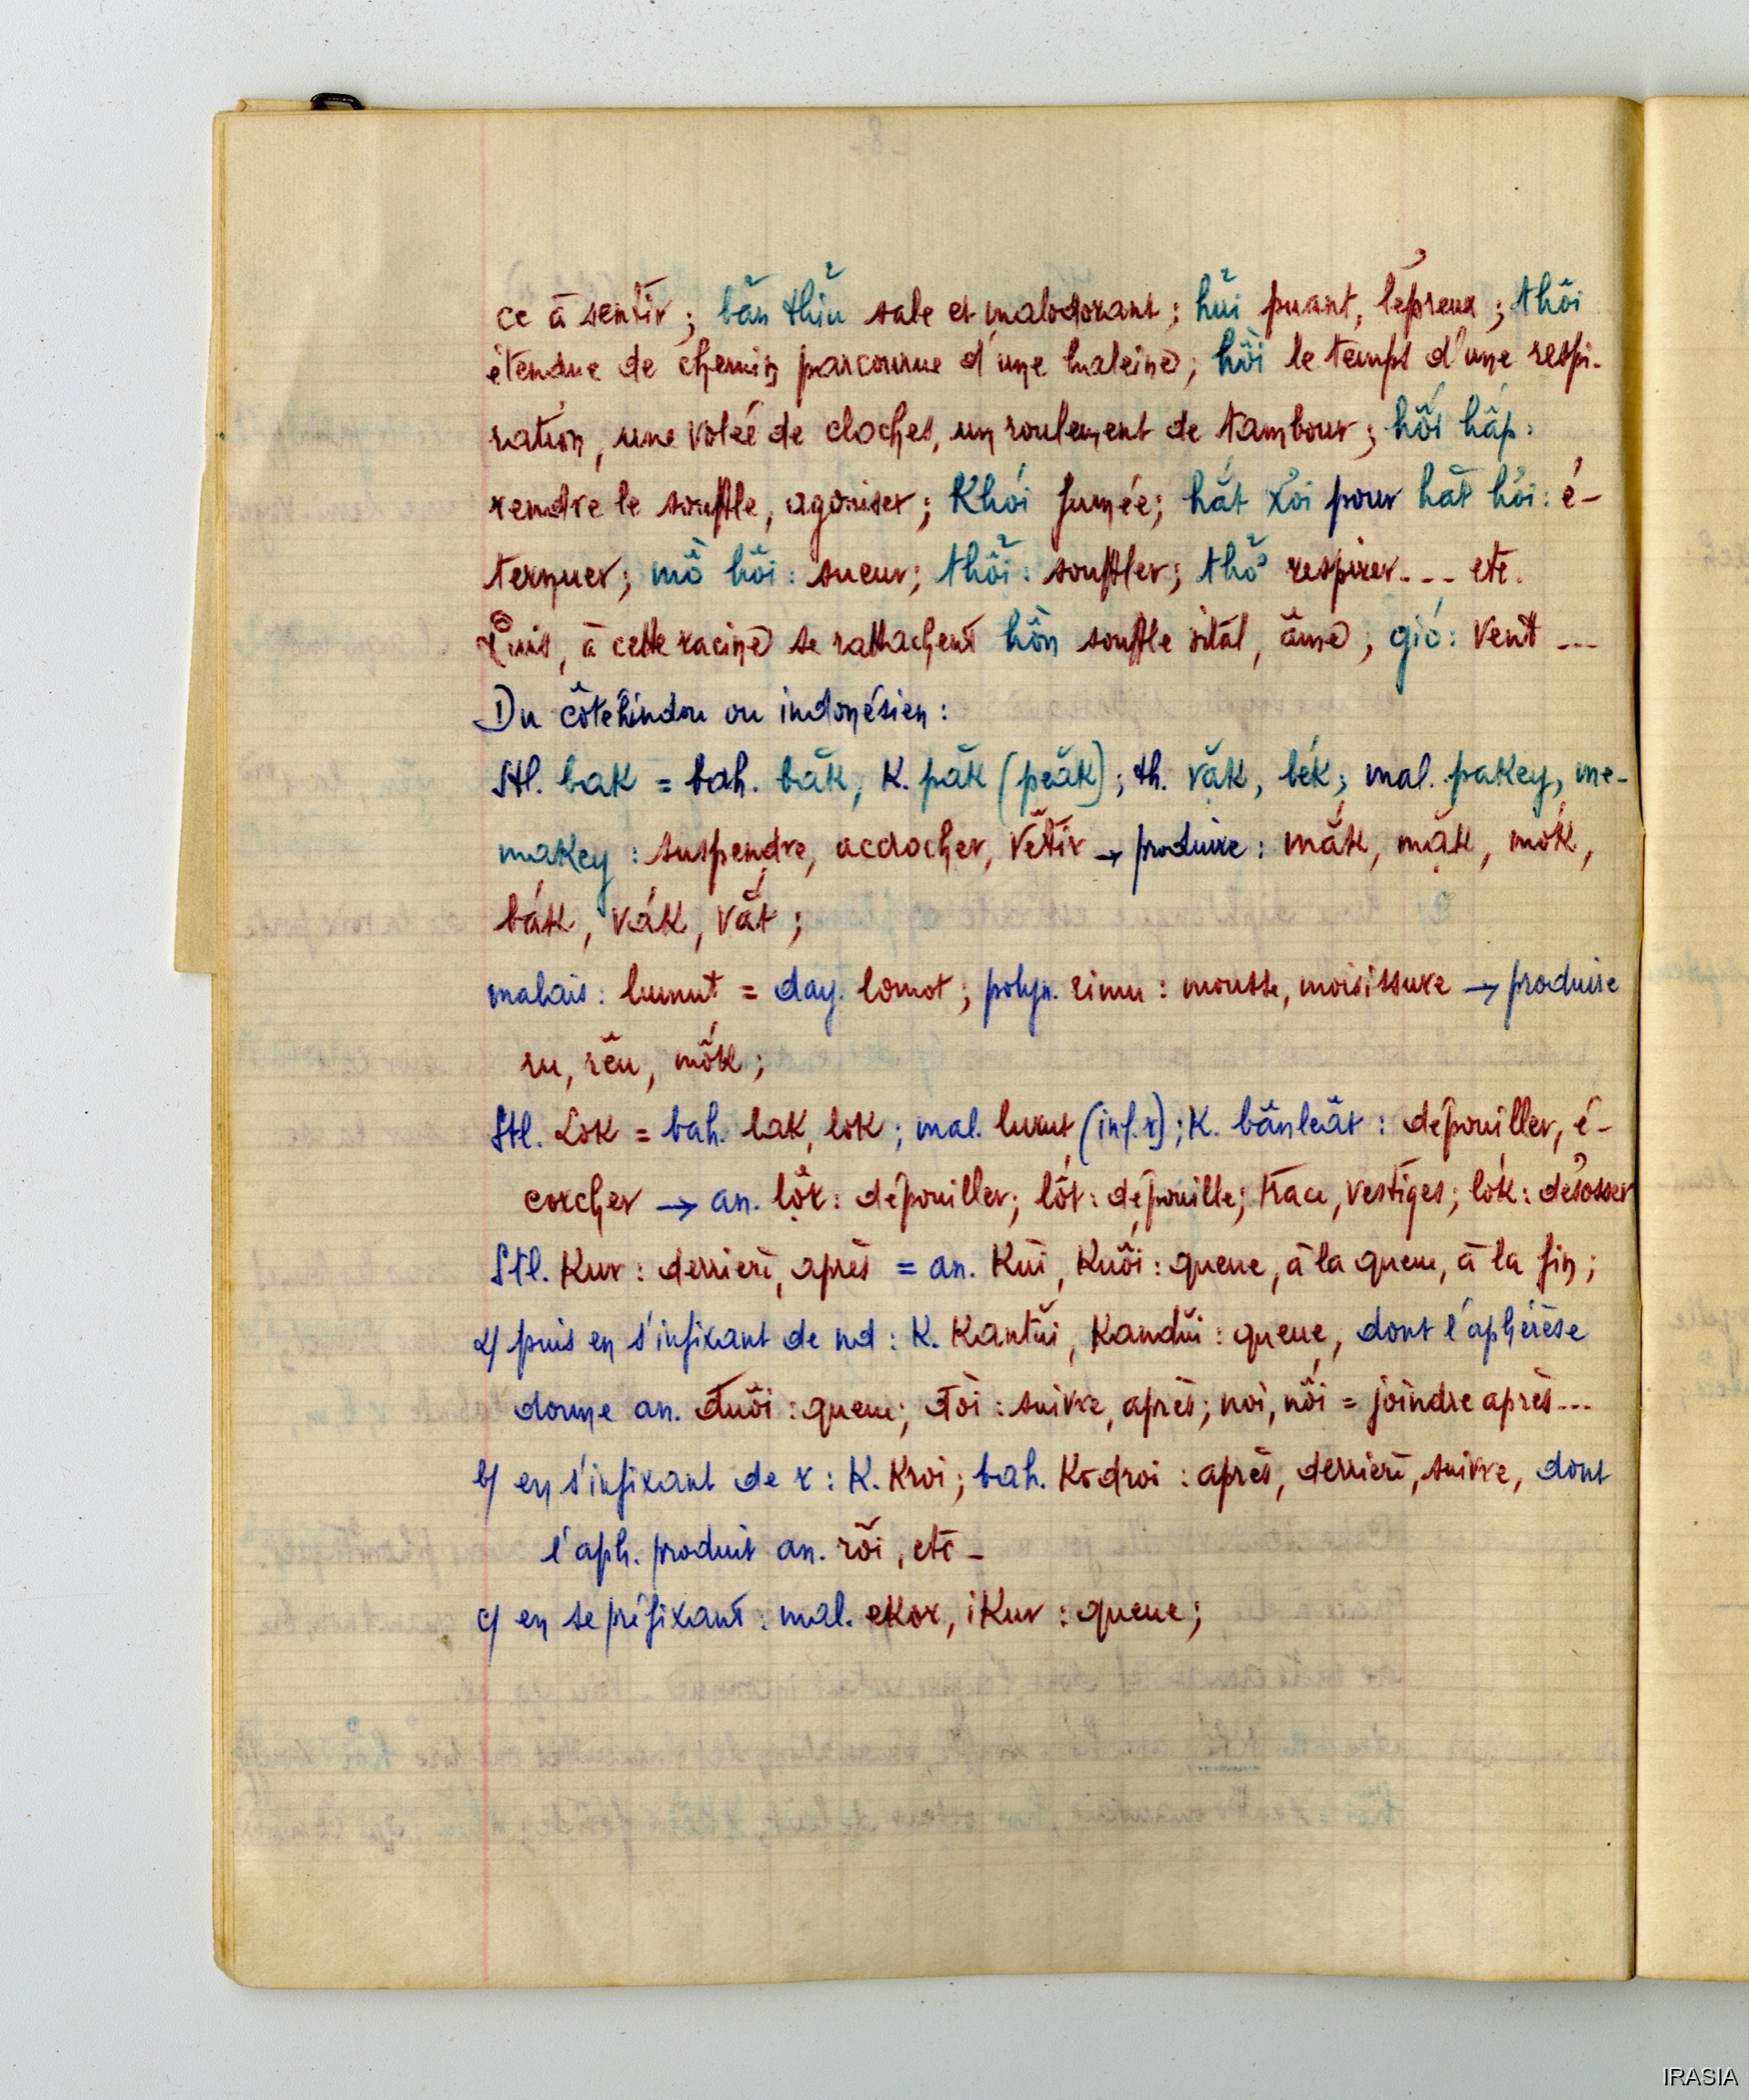 ce à sentir ; bẩn thỉu sale et malodorant ; hủi puant, lépreux ; thôi
étendue de chemin parcourue d'une haleine ; hồi le temps d'une respi-
ration, une volée de cloches, un roulement de tambour ; hối hấp :
rendre le souffle, agoniser ; Khói fumée ; hắt xơi pour hắt hơi : é-
ternuer ; mồ hôi : sueur ; thổi : souffler ; thở respirer --- etc.
Puis, à cette racine se rattachent hồn souffle vital, âme ; gió : vent ---
Du côté hindou ou indonésien :
Stl. bak = bah. băk, K. păk (peăk) ; th. văk, bék ; mal. pakey, me-
makey : suspendre, accrocher, vêtir → produire : mắk, mặk, mók,
bák, vák, vắt ;
malais : lumut = day. lomot ; polyn. rimu : mousse, moisissure → produire
ru, rêu, mốk ;
Stl. Lok = bah. lak, lok ; mal. lurut (inf. r) ; K. bânleât : dépouiller, é-
corcher → an. lột : dépouiller ; lốt : dépouille, trace, vestiges ; lók : désosser
Stl. Kur : derrière, après = an. Kúi, Kuối : queue, à la queue, à la fin ;
a/ puis en s'infixant de nd : K. Kantŭi, Kandŭi : queue, dont l'aphérèse
donne an. đuôi : queue ; đòi : suivre, après ; noi, nối = joindre après ---
b/ en s'infixant de r : K. Kroi ; bah. Kodroi : après, derrière, suivre, dont
l'aph. produit an. rồi, etc -
c/ en se préfixant : mal. ekor, iKur : queue ;
IRASIA